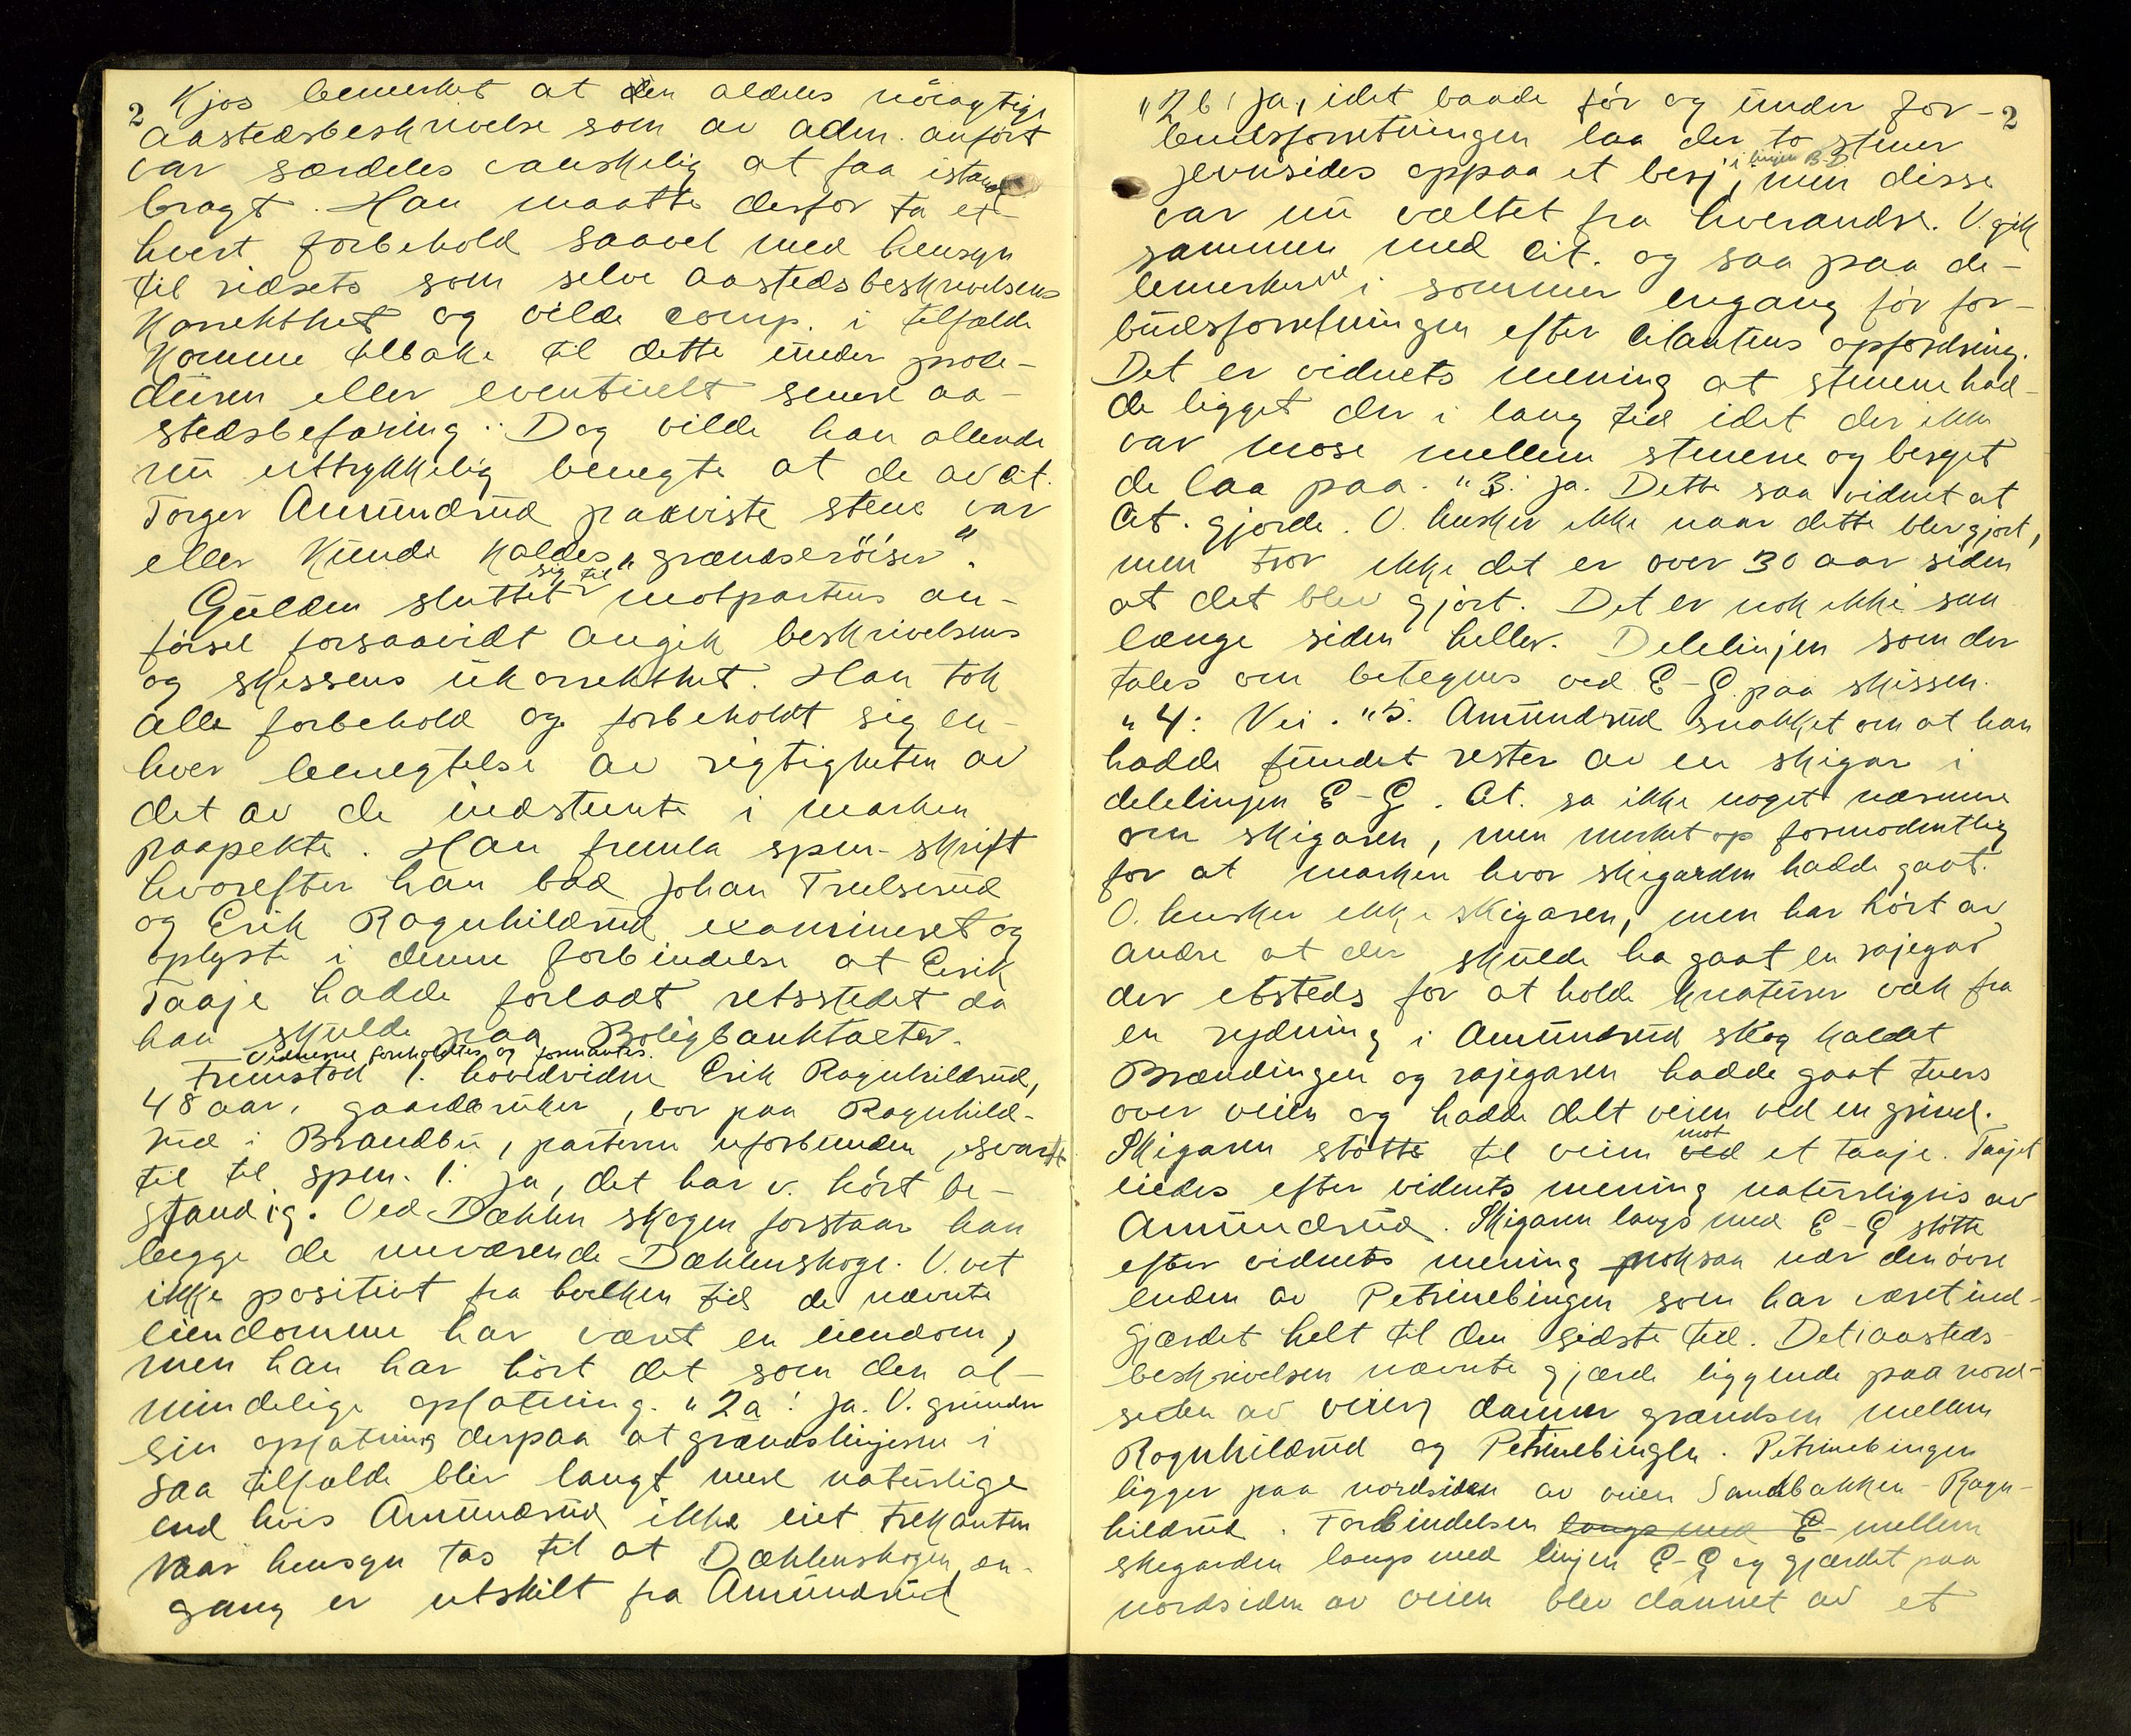 2
Kjos bemerket at den aldeles nöiagtige
aastedsbeskrivelse som av adm. anført
var særdeles vanskelig at faa istand
bragt. Han maatte derfor ta et-
hvert forbehold saavel med hensyn
til ridsets som selve aastedsbeskrivelsens
korrekthet og vilde comp. i tilfælde
komme tilbake til dette under proce-
düren eller eventuelt senere aa-
stedsbefaring. Dog vilde han allerede
nu uttrykkelig benegte at de av cit.
Torger Amundrud paaviste stene var
eller kunde kaldes "grændseröiser".
Gulden sluttet sig til motpartens an-
førsel forsaavidt angik beskrivelsens
og skissens ukorrekthet. Han tok
alle forbehold og forbeholdt sig en-
hver benegtelse av rigtigheten av
det av de indstevnte i marken
paapekte. Han fremla spm-skrift
hvorefter han bad Johan Trulserud
og Erik Ragnhildrud examineret og
oplyste i denne forbindelse at Erik
Taaje hadde forladt retsstedet da
han skulde paa Boligbanktakster.
Vidnerne foreholdtes og formantes.
Fremstod 1. hovedvidne Erik Ragnhildrud,
48 aar, gaardbruker, bor paa Ragnhild-
rud i Brandbu, parterne uforbunden, svarte
til til spm. 1: ja, det har v. hørt be-
standig. Ved Dæhlen skogen forstaar han
begge de nuværende Dæhlenskoge. V. vet
ikke positivt fra hvilken tid de nævnte
eiendomme har været en eiendom,
men han har hørt det som den al-
mindelige opfatning. " 2a: ja. V. grunder
sin opfatning derpaa at grændselinjerne i
saa tilfælde blir langt mere naturlige
end hvis Amundrud ikke eiet trekanten
naar hensyn tas til at Dæhlenskogen en-
gang er utskilt fra Amundrud
2
" 2b: ja, idet baade før og under for-
budsforretningen laa der to stener
jevnsides oppaa et berj, i linjen B-D men disse
var nu væltet fra hverandre. V. gik
sammen med cit. og saa paa de-
lemerkerne i sommer engang før for-
budsforretningen efter citantens opfordring.
Det er vidnets mening at stenene had-
de ligget der i lang tid idet der ikke
var mose mellem stenene og berget
de laa paa. " 3: ja. Dette saa vidnet at
cit. gjorde. V. husker ikke naar dette blev gjort,
men tror ikke det er over 30 aar siden
at det blev gjort. Det er nok ikke saa
længe siden heller. Delelinjen som der
tales om betegnes ved E-G paa skissen.
" 4: Nei. " 5. Amundrud snakket om at han
hadde fundet rester av en skigar i
delelinjen E-G. Cit. sa ikke noget nærmere
om skigaren, men merket op formodentlig
for at marken hvor skigarden hadde gaat.
V. husker ikke skigaren, men har hört av
andre at der skulde ha gaat en rajegar
der etsteds for at holde kreaturer væk fra
en rydning i Amundrud skog kaldet
Brændingen og rajegaren hadde gaat tvers
over veien og hadde delt veien ved en grind.
Skigaren støtte til veien ved mot et taaje. Taajet
eiedes efter vidnets mening naturligvis av
Amundrud. Skigaren langs med E-G støtte
efter vidnets mening noksaa nær den övre
enden av Petrinebingen som har været ind-
gjærdet helt til den sidste tid. Det i aasteds-
beskrivelsen nævnte gjærde liggende paa nord-
siden av veien danner grændsen mellem
Ragnhildrud og Petrinebingen. Petrinebingen
ligger paa nordsiden av veien Sandbakken-Ragn-
hildrud. Forbindelsen langs med E- mellem
skigarden langs med linjen E-G og gjærdet paa
nordsiden av veien blev dannet av et